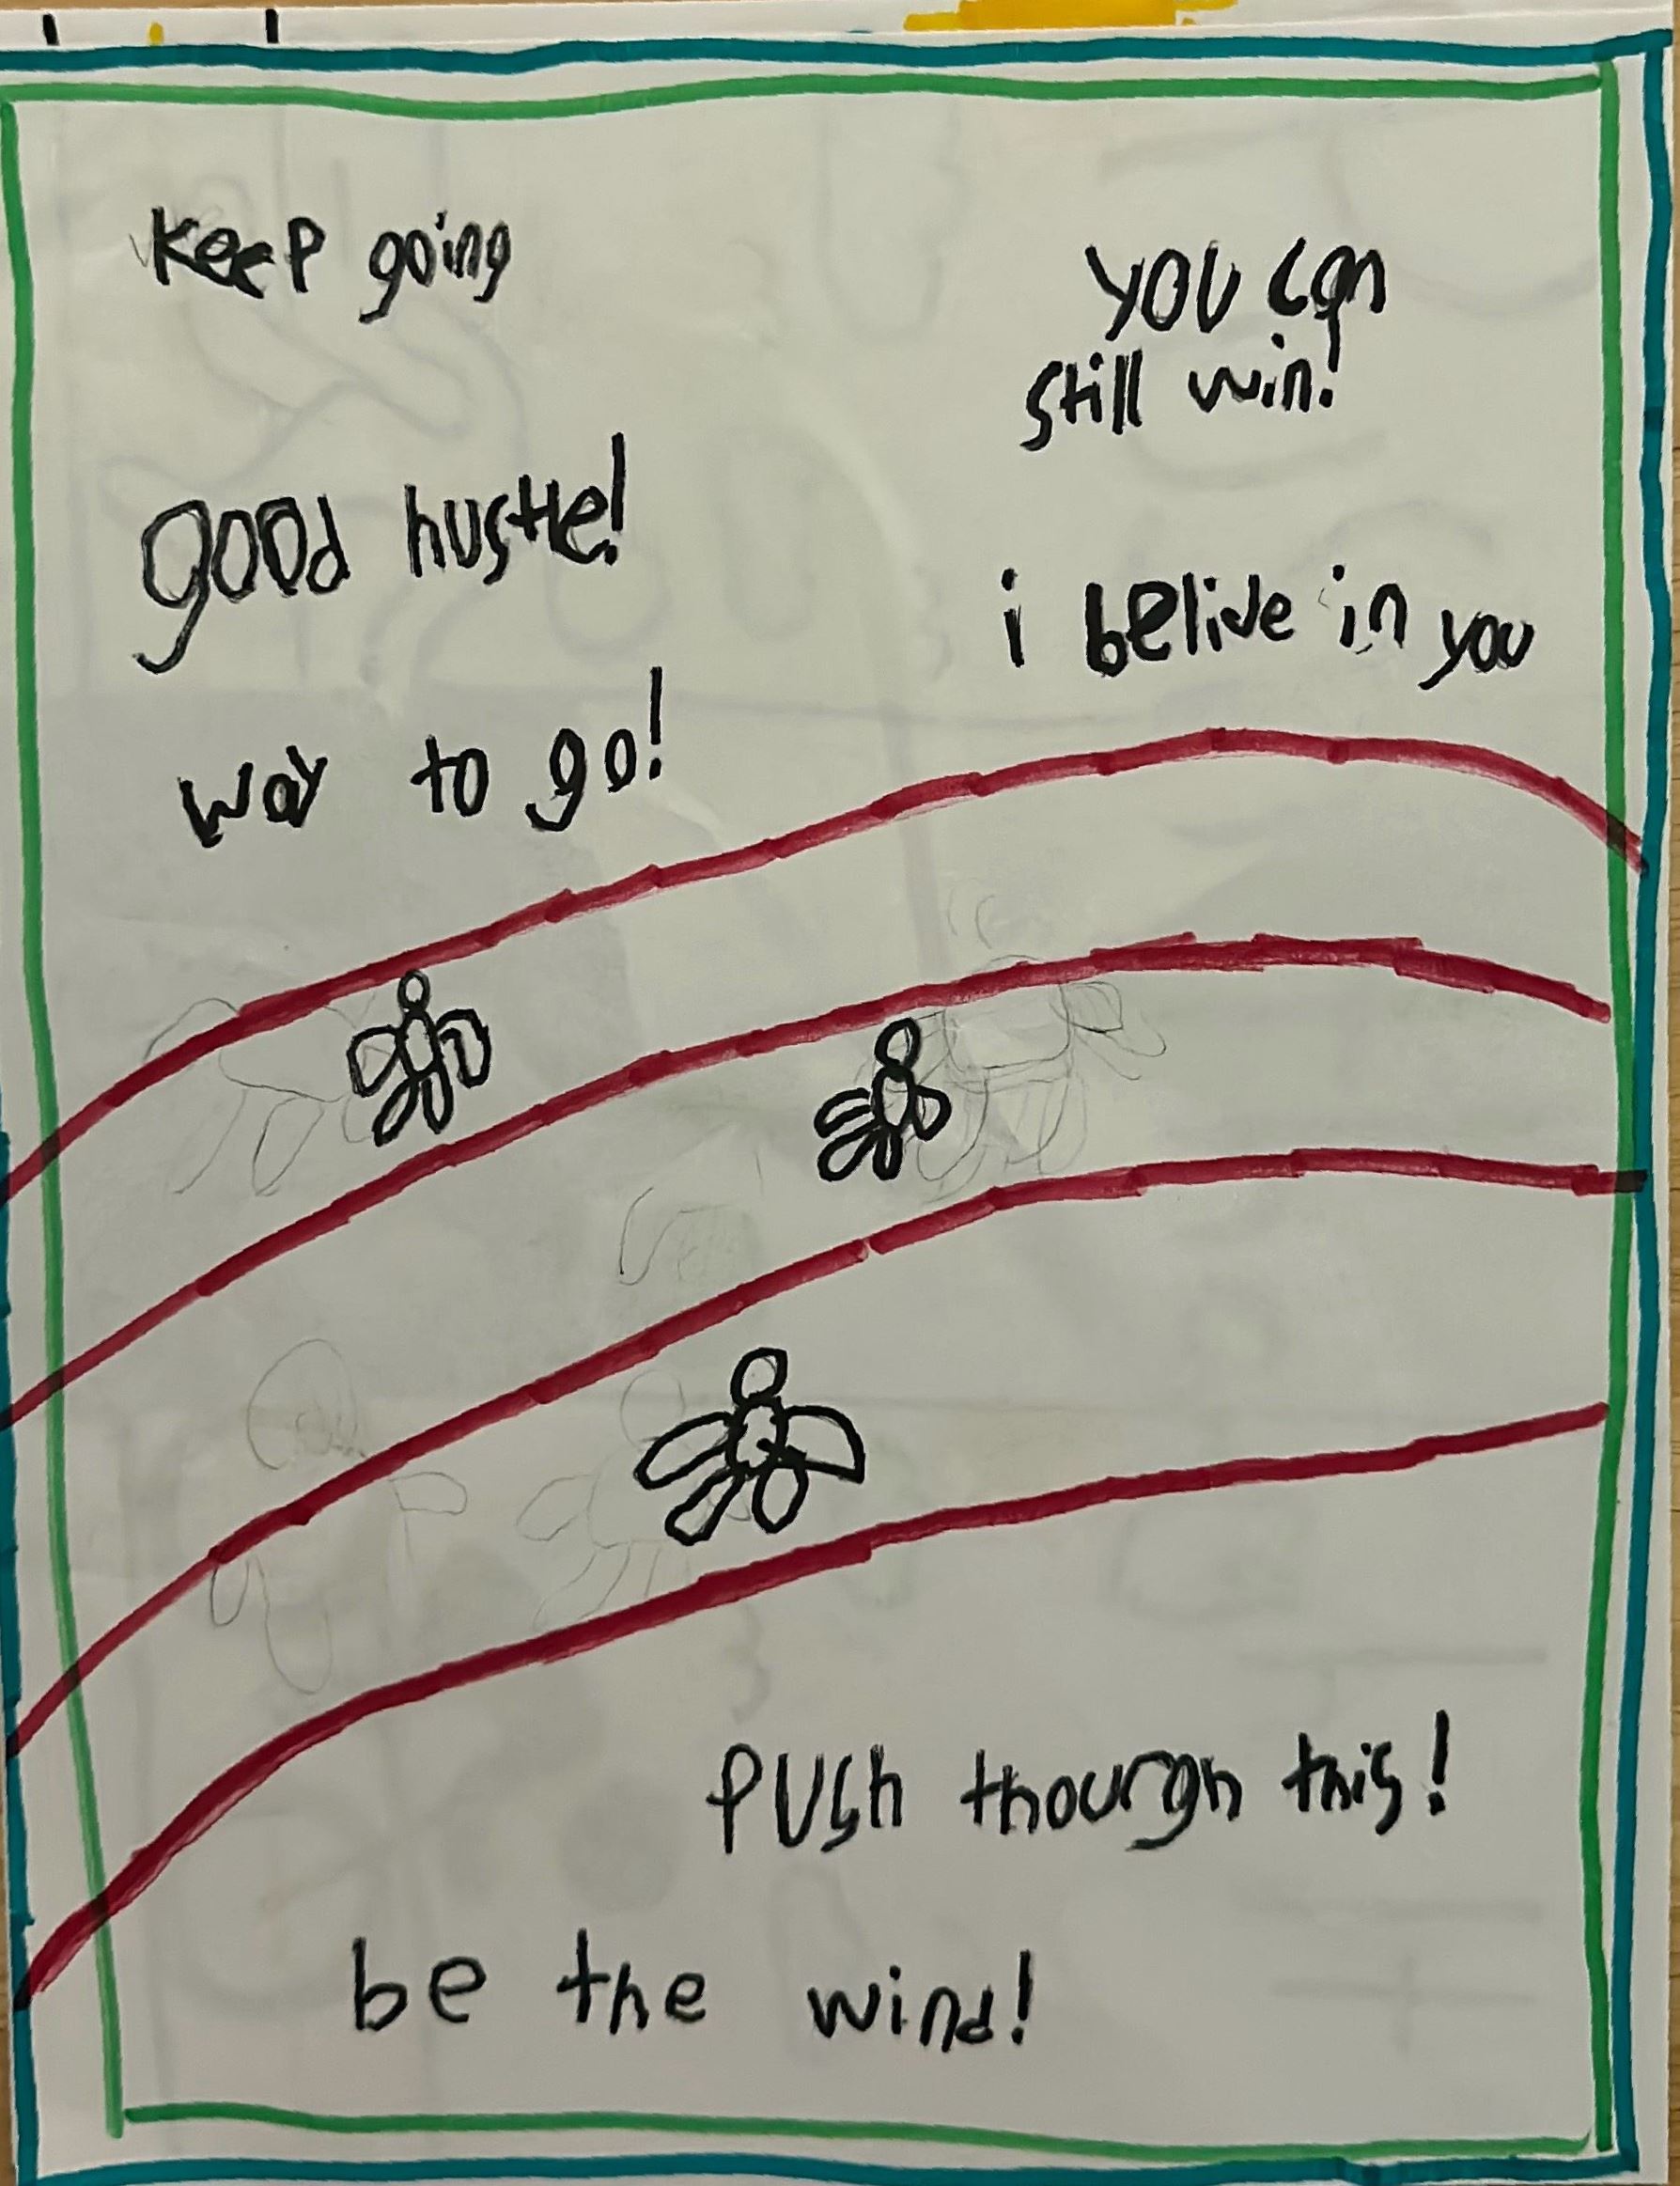 Keep going
you can
still win!
good hustle!
i belive in you
way to go!
push thourgh this!
be the wind!